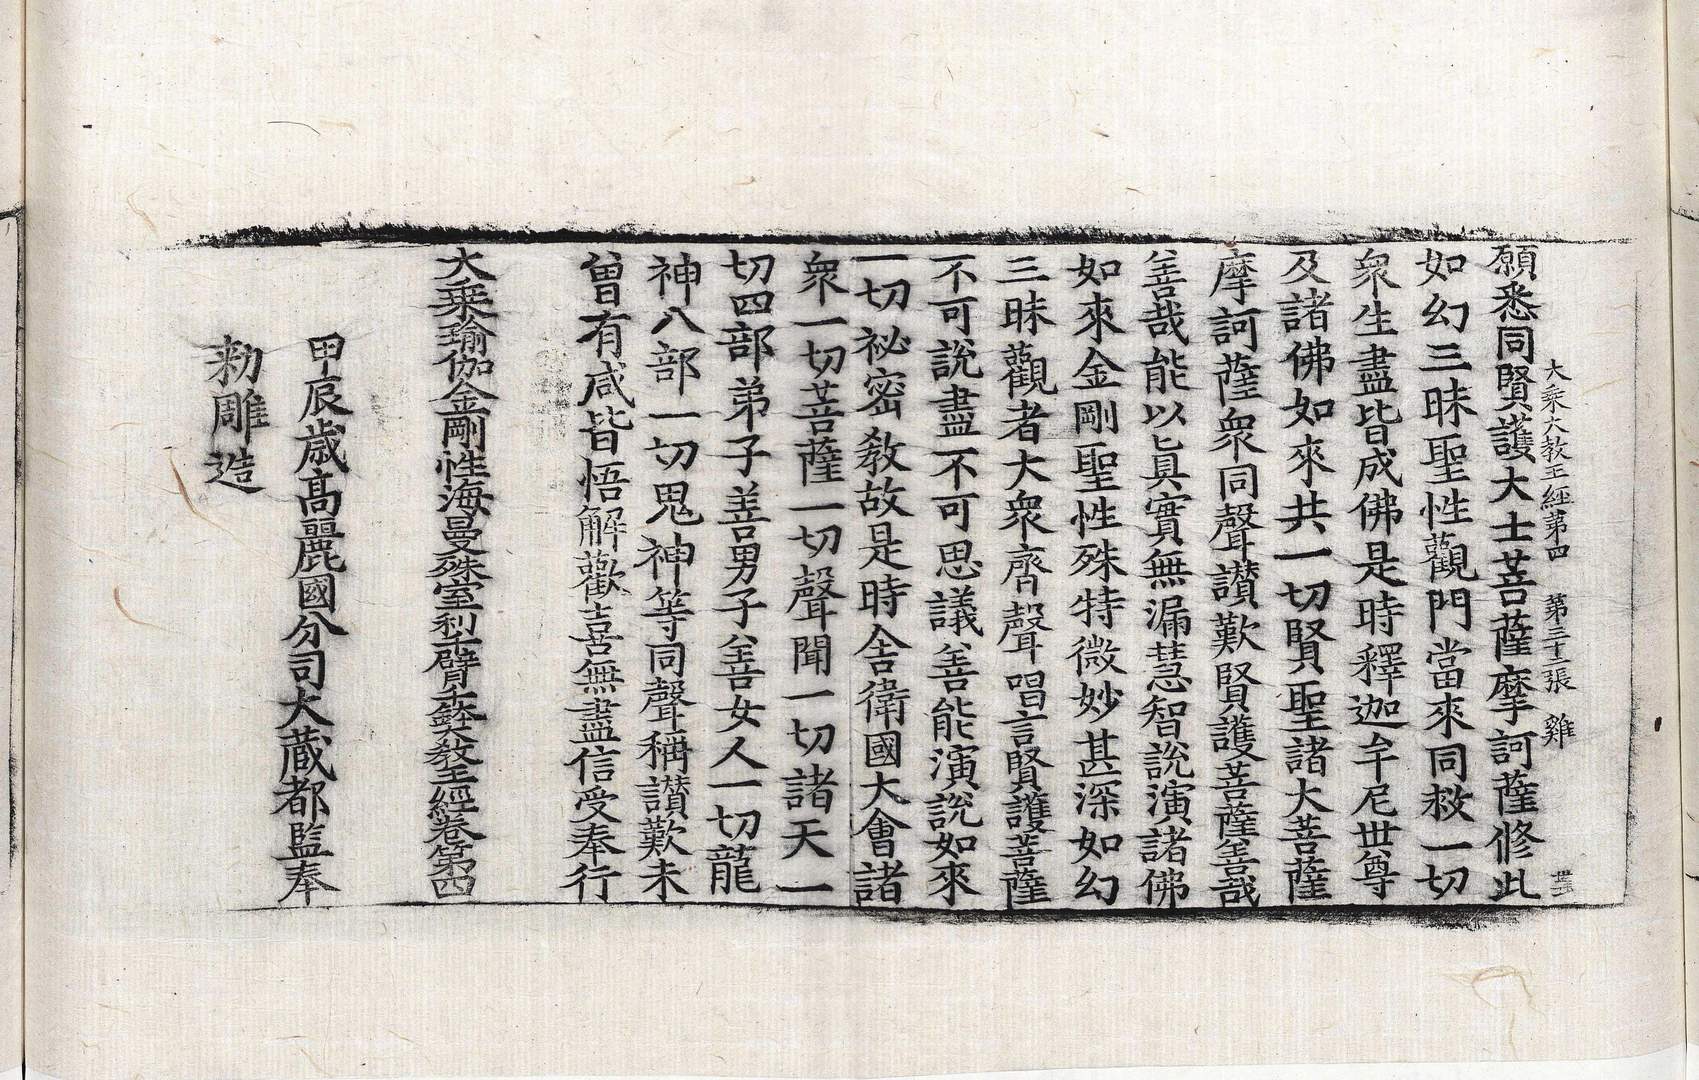 大乘大教王經第四　第三十二張　雞
願悉同賢護大士菩薩摩訶薩修此
如幻三昧聖性觀門當來同救一切
衆生盡皆成佛是時釋迦牟尼世尊
及諸佛如來共一切賢聖諸大菩薩
摩訶薩衆同聲讃歎賢護菩薩善哉
善哉能以眞實無漏慧智說演諸佛
如來金剛聖性殊特微妙甚深如幻
三昧觀者大衆齊聲唱言賢護菩薩
不可說盡不可思議善能演說如來
一切祕密敎故是時舍衛國大會諸
衆一切菩薩一切聲聞一切諸天一
切四部弟子善男子善女人一切龍
神八部一切鬼神等同聲稱讃歎未
曾有咸皆悟解歡喜無盡信受奉行
大乘瑜伽金剛性海曼殊室利千臂千鉢大敎王經卷第四
甲辰歲高麗國分司大藏都監奉
勑雕造